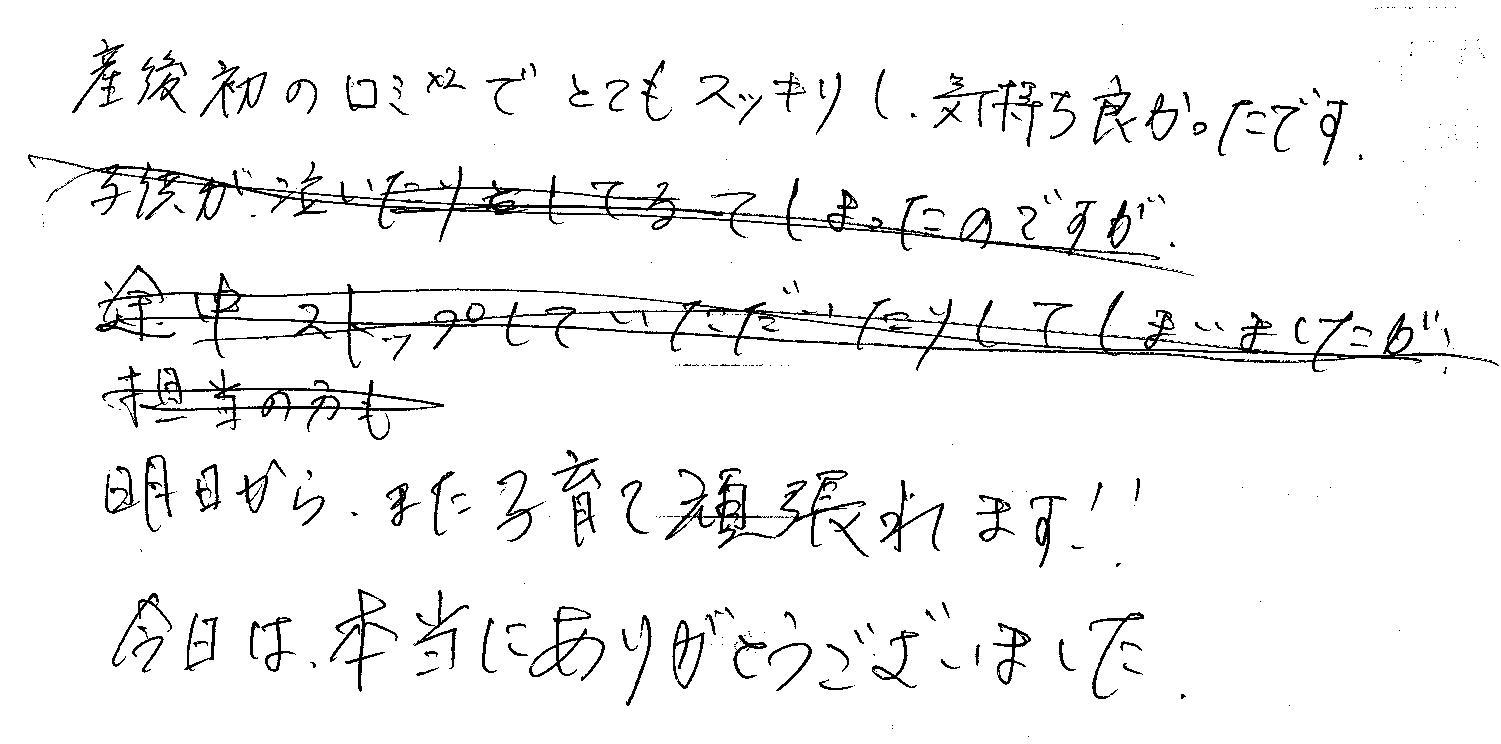 産後初のロミ×2でとてもスッキリし、気持ち良かったです.
子供が泣いたりとしてるてしまったのですが.
途中ストップしていただいたりしてしまいましたが、
担当の方も
明日から、また子育て頑張れます!!
今日は、本当にありがとうございました.